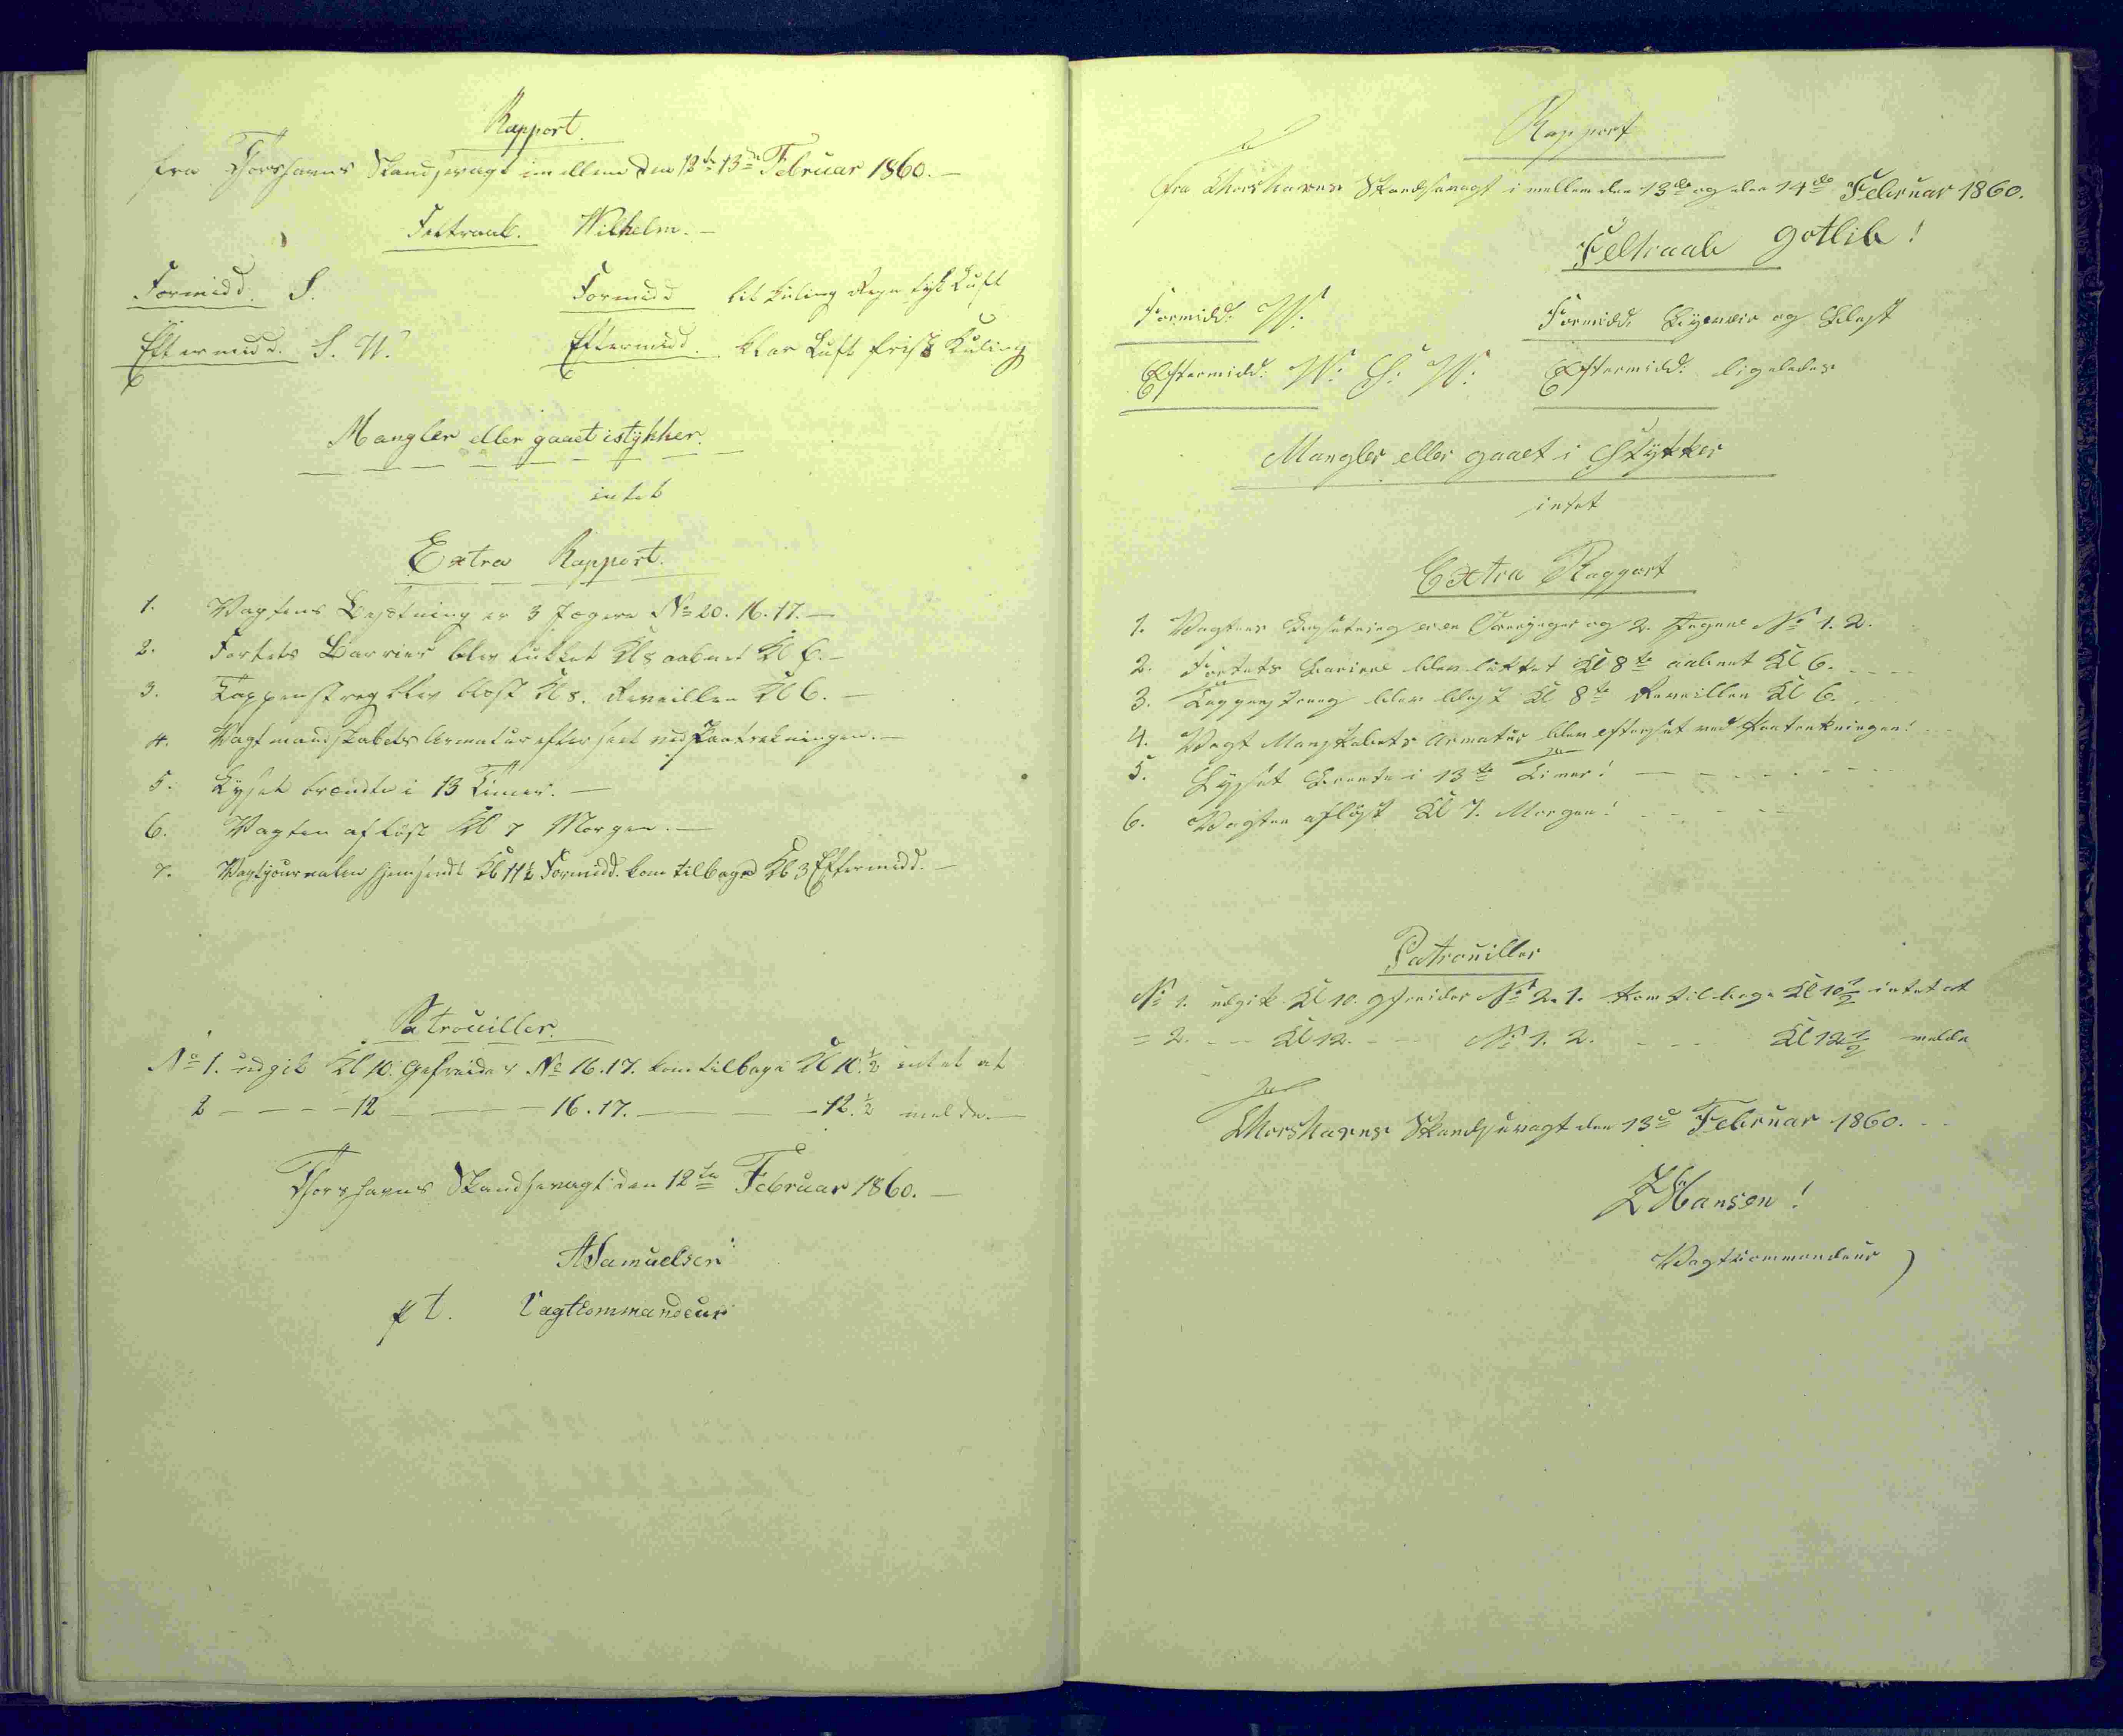 Rapport.
fra Thorshavns Skandsevagt imellem den 12te 13de Februar 1860. —
Feltraab. Wilhelm. —
Formidd. S. Formidd lit Kuling Regn tyk Luft
Eftermidd. S. W. Eftermidd. klar Luft frisk Kuling
Mangler eller gaaet istykker.
intet
Extra Rapport.
1. Vagtens Besætning er 3 Jægere No 20. 16. 17. —
2. Fortets Barrier blev lukket Kl 8 aabnet Kl 6. —
3. Tappenstreg blev blæst Kl 8. Reveillen Kl 6. —
4. Vagtmandskabets Armatur efterseet ved Paatrækningen. —
5. Lyset brændte i 13 Timer. —
6. Vagten afløst Kl 7 Morgen. —
7. Vagtjournalen hjemsendt Kl 11½ Formidd. kom tilbage Kl 3 Eftermidd. —
Patrouiller.
No 1. udgik Kl 10. Gefreider No 16. 17. kom tilbage Kl 10.½ intet at
2 — — — — 12 — — — 16. 17. — — — 12.½ melde. —
Thorshavns Skandsevagt den 12te Februar 1860. —
ASamuelsen
p t. Vagtkommandeur
Rapport
fra Thorshavns Skandsevagt i mellem den 13de og den 14de Februar 1860.
Feltraab Gotlib!
Formidd: W: Formidd. og Blæst
Eftermidd: W: S: W: Eftermidd: ligeledes
Mangler eller gaaet i Stykker
intet
Extra Rapport
1. Vagtens Besetning er en Overjæger og 2. Jægere No 1. 2.
2. Fortets Bariere blev lukket Kl 8te aabnet Kl 6. — — —
3. Tappenstreeg blev blæst Kl 8te Reveillen Kl 6. — —
4. Vagt Manskabets Armatur blev efterset ved Paatrekningen!
5. Lyset Brente i 13te Timer! — — — — — —
6. Vagten afløst Kl 7. Morgen! — — — —
Patrouiller
No 1. udgik Kl 10. Gefreider No 2. 1. kom tilbage Kl 10½ intet at
= 2. — — Kl 12. — — No 1. 2. — — — Kl 12½ melde
Thorshavns Skandsevagt den 13de Februar 1860. — —
Hansen!
Vagtkommandeur